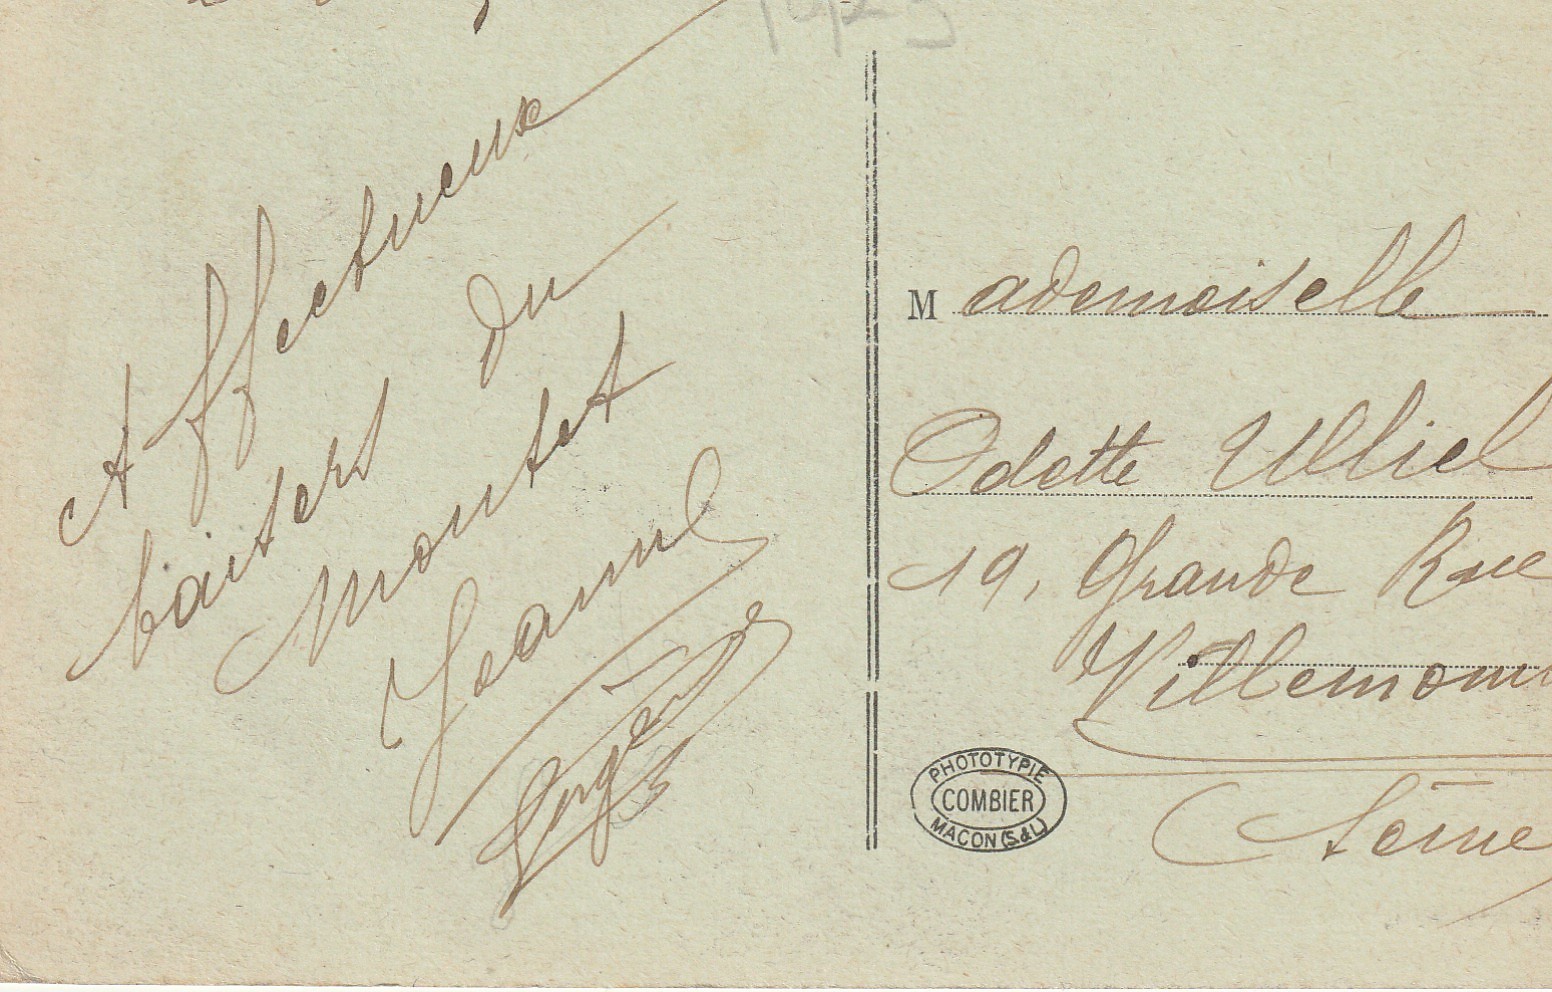 Affectueux
baisers du
Montset
Jeanne
Mademoiselle
Odette Ulliel
19, Grande Rue
Villemom
Seine
PHOTOTYPIE
COMBIER
MACON (S&L)